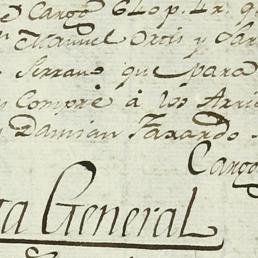 Cargo 640 p. 4 r. q
Manuel Ortis y Jar
Serrano que para
Compre à los Arri
Damian Faxardo
Cargo
ta General